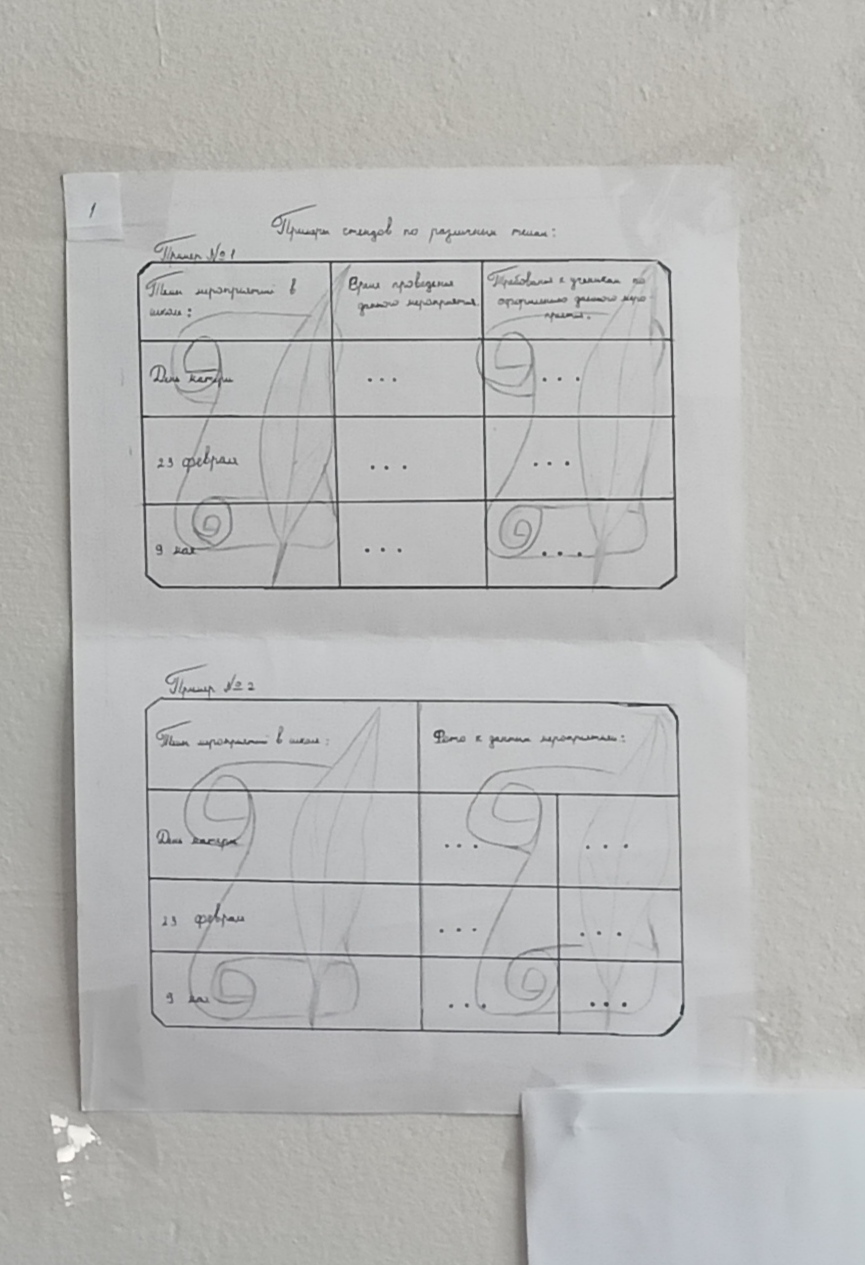 1
Примеры стендов по различным темам:
Пример №1
Темы мероприятий в
школе:
Время проведения
данного мероприятия.
Требования к ученикам по
оформлению данного меро
приятия.
День матери
...
...
23 февраля
...
...
9 мая
...
...
Пример №2
Темы мероприятий в школе:
Фото к данным мероприятиям:
День матери
...
...
23 февраля
...
...
9 мая
...
...